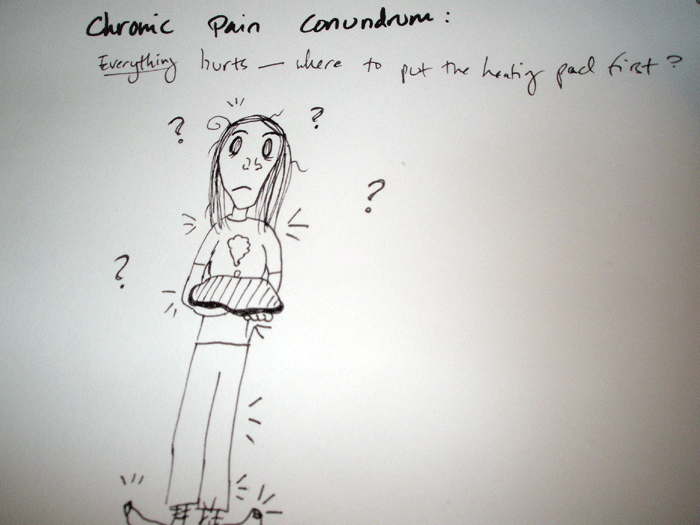 Chronic Pain Conundrum:
Everything hurts — where to put the heating pad first?
? ?
?
?